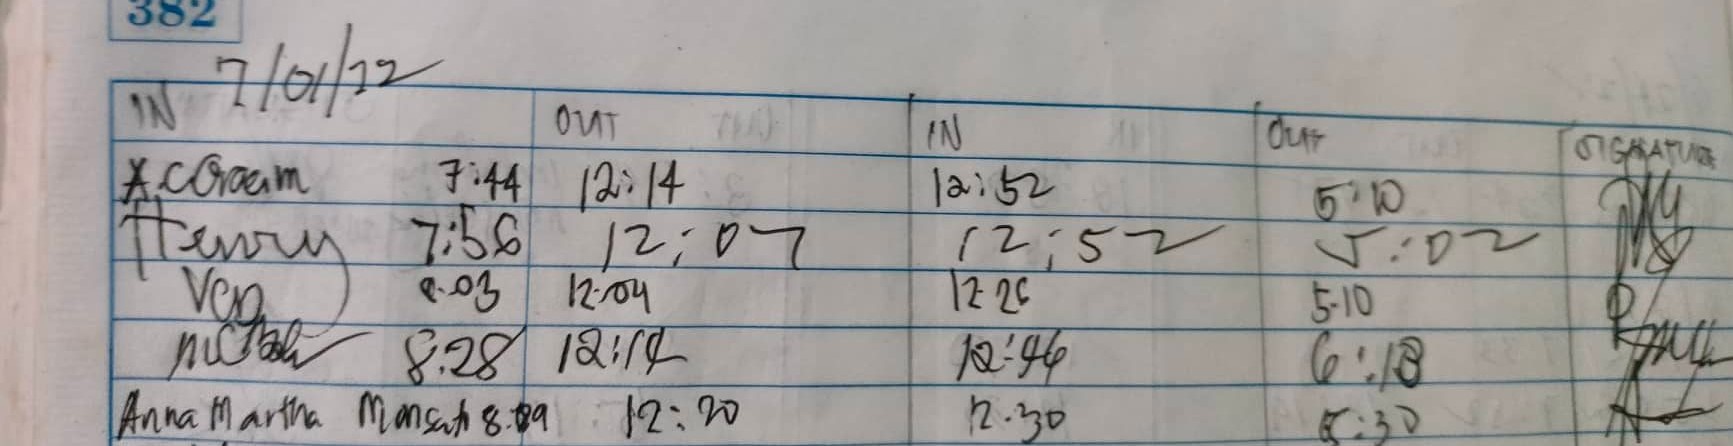 382
7/01/22
IN OUT IN OUT SIGNATURE
7:44 12:14 12:52 5:10
Henry 7:56 12:07 12:52 5:02
Ven 8:03 12:04 12 26 5.10
8:28 12:14 12:46 6:18
Anna Martha 12:20 12:30 5:30